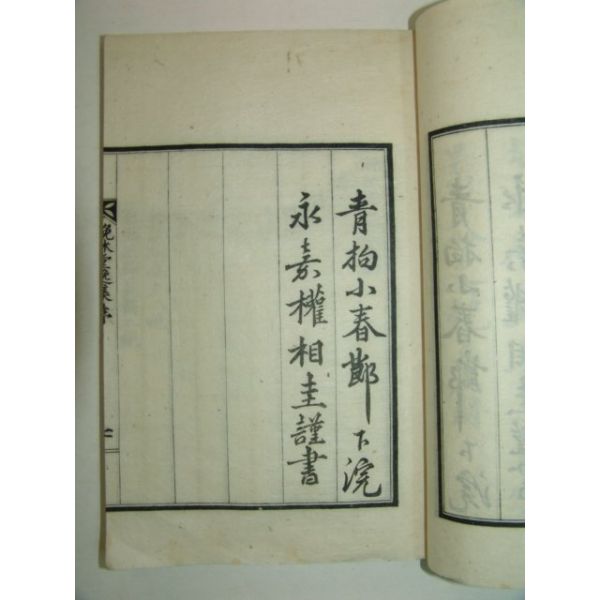 青拘小春節下浣
永嘉權相圭謹書